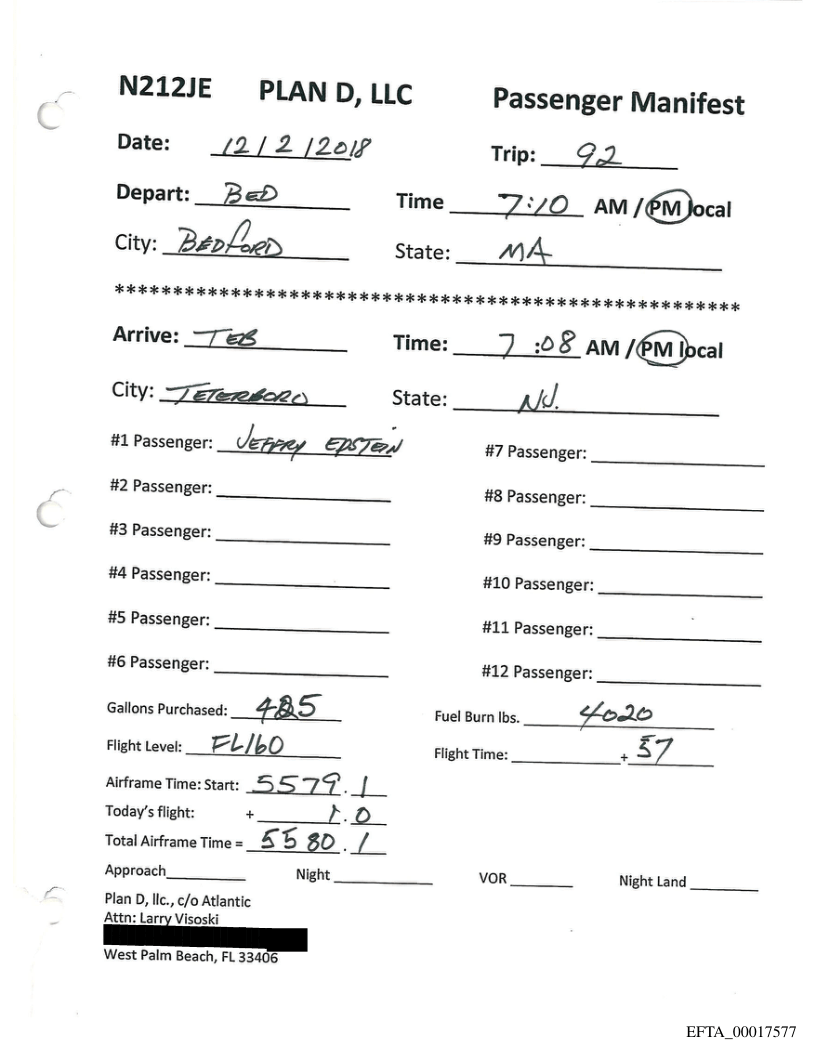 N212JE PLAN D, LLC Passenger Manifest
Date: 12/2/2018 Trip: 92
Depart: BED Time 7:10 AM / PM local
City: BEDFORD State: MA
*******************************************************
Arrive: TEB Time: 7:08 AM / PM local
City: TETERBORO State: NJ.
#1 Passenger: JEFFRY EPSTEIN #7 Passenger:
#2 Passenger: #8 Passenger:
#3 Passenger: #9 Passenger:
#4 Passenger: #10 Passenger:
#5 Passenger: #11 Passenger:
#6 Passenger: #12 Passenger:
Gallons Purchased: 425 Fuel Burn lbs. 4020
Flight Level: FL160 Flight Time: + 57
Airframe Time: Start: 5579.1
Today's flight: + 1.0
Total Airframe Time = 5580.1
Approach Night VOR Night Land
Plan D, llc., c/o Atlantic
Attn: Larry Visoski
West Palm Beach, FL 33406
EFTA_00017577